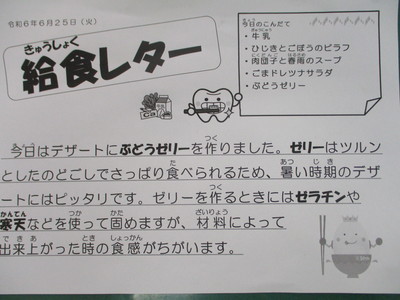 令和6年6月25日（火）
給食レター
きゅうしょく
今日のこんだて
・牛乳
・ひじきとごぼうのピラフ
・肉団子と春雨のスープ
・ごまドレツナサラダ
・ぶどうゼリー
今日はデザートにぶどうゼリーを作りました。ゼリーはツルン
としたのどごしでさっぱり食べられるため、暑い時期のデザ
ートにはピッタリです。ゼリーを作るときにはゼラチンや
寒天などを使って固めますが、材料によって
出来上がった時の食感がちがいます。